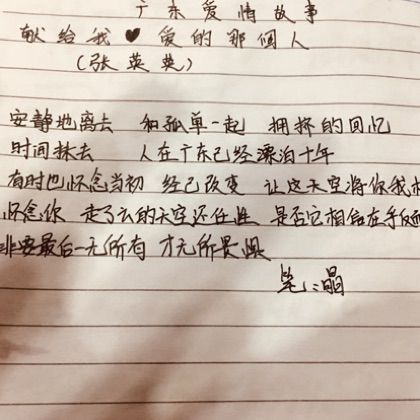 广东爱情故事
献给我♥爱的那個人
(张英英)
安静地离去 和孤单一起 拥挤的回忆
时间抹去 人在广东已经漂泊十年
有时也怀念当初 经已改变 让这天空将你我
怀念你 走了云的天空还任性 是否它相信在手
非要最后一无所有 才无所畏惧
笔:晶